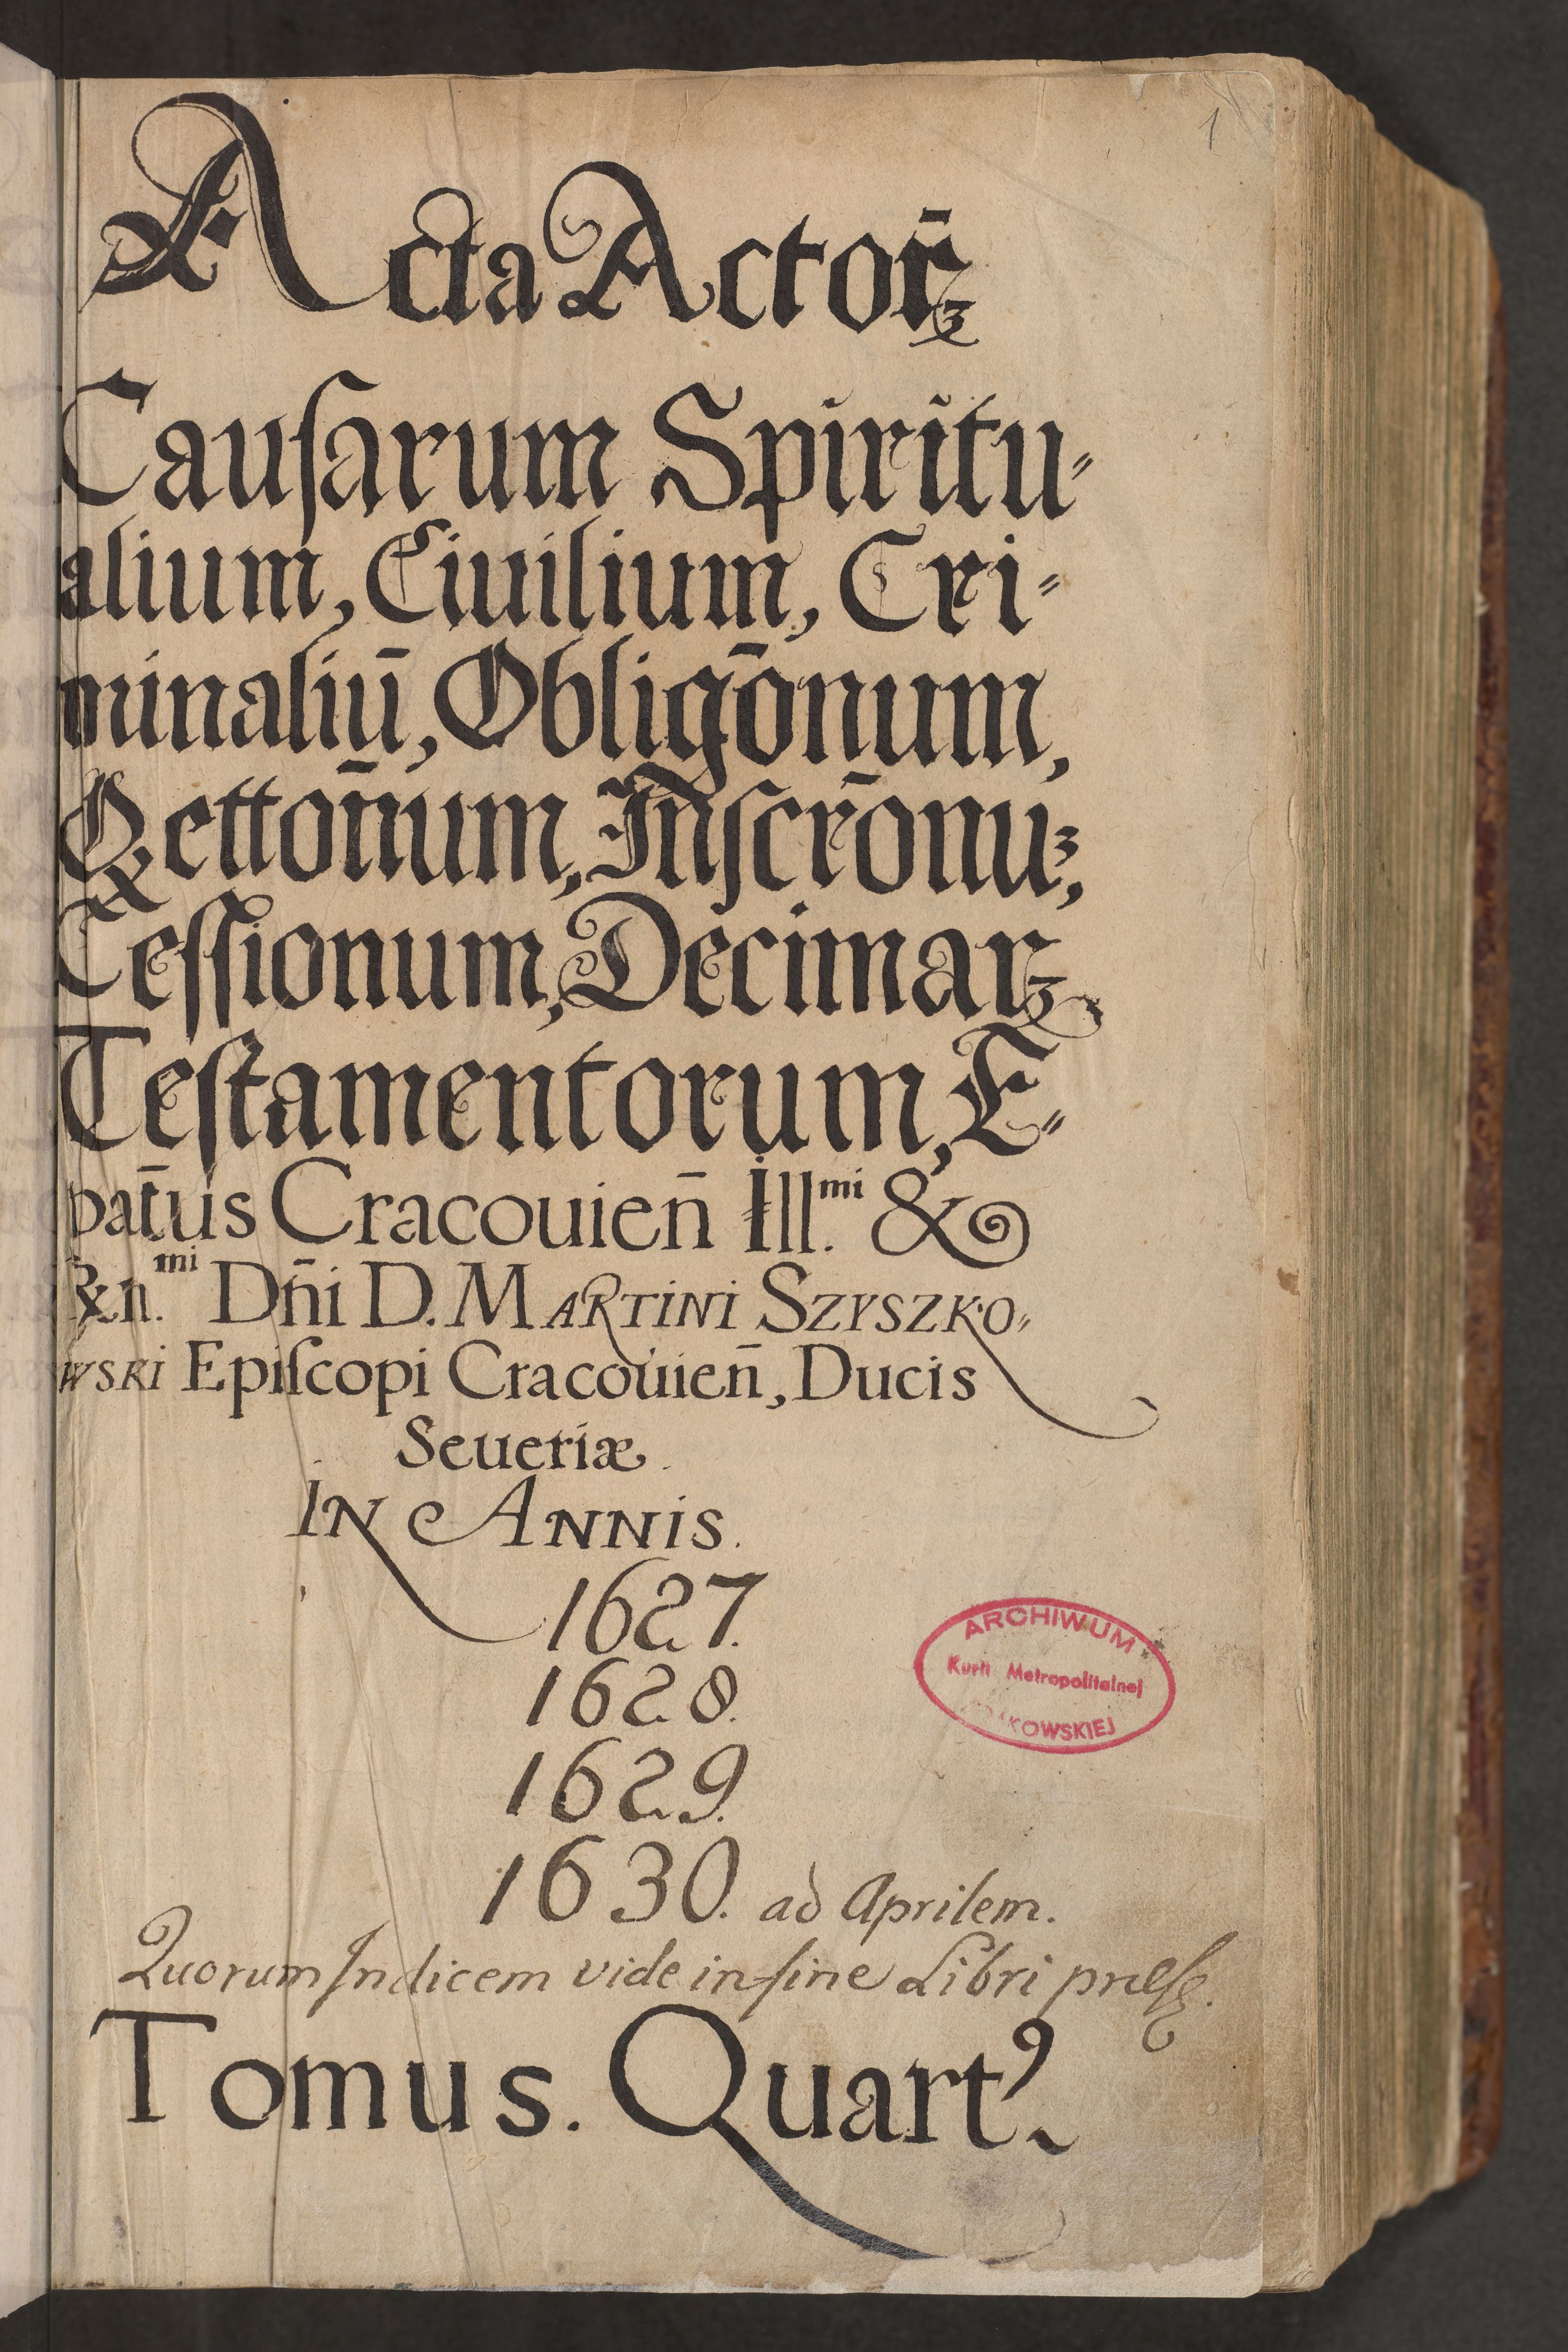 1
Acta Actor̄ꝝ
Causarum Spiritu⸗
alium, Ciuilium, Cri⸗
minaliū, Obligōnum,
Rettōnum, Inscrōnuꝫ,
Cessionum, Decimarꝝ
Testamentorum, E⸗
pat̄us Cracouien̄ Ill.mi &
Rn.mi Dn̄i D. MARTINI SZYSZKO⸗
WSKI Episcopi Cracouien̄, Ducis
Seueriæ.
IN ANNIS.
1627.
1628.
1629.
1630. ad Aprilem.
Quorum Indicem vide in fine Libri præsꝫ.
Tomus. Quartꝰ.
ARCHIWUM
Kurii Metropolitalnej
KRAKOWSKIEJ